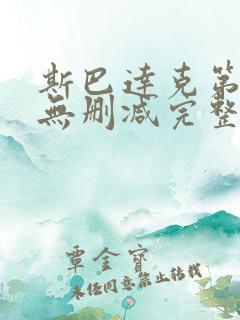 斯巴達克第
無刪減完整
覃金寶
未经同意禁止转载